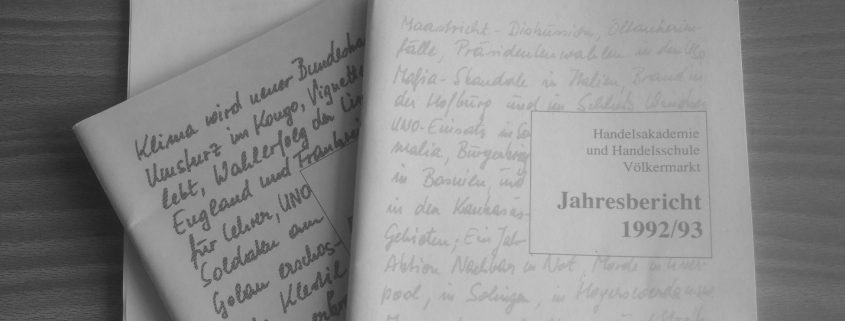 Klima wird neuer Bundeska
Umsturz im Kongo, Vignette
lebt, Wahlerfolg der Lin
England und Frankreich
für Lehrer, UNO
Soldaten am
Golan erschos-
Klestil
Maastricht - Diskussion, Öltankerun-
fälle, Präsidentenwahlen in den USA
Mafia-Skandale in Italien, Brand in
der Hofburg und im Schloß Windsor
UNO-Einsatz in So
malia, Bürgerkrieg
in Bosnien, und
in den Kaukasus-
Gebieten; Ein Jahr
Aktion Nachbar in Not, Morde in Liver
pool, in Solingen, in Hoyerswerda
Handelsakademie
und Handelsschule
Völkermarkt
Jahresbericht
1992/93